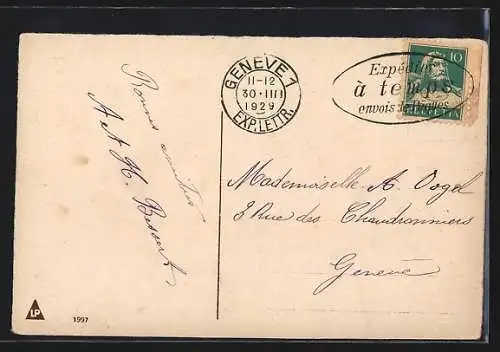 Bonnes amitiés
A et H. Bessert
GENÈVE 1
11-12
30·III
1929
EXP.LETTR.
Expédiez
à temps
envois de Pâques
10
HELVETIA
Mademoiselle A. Vogel
3 Rue des Chaudronniers
Genève
LP
1997